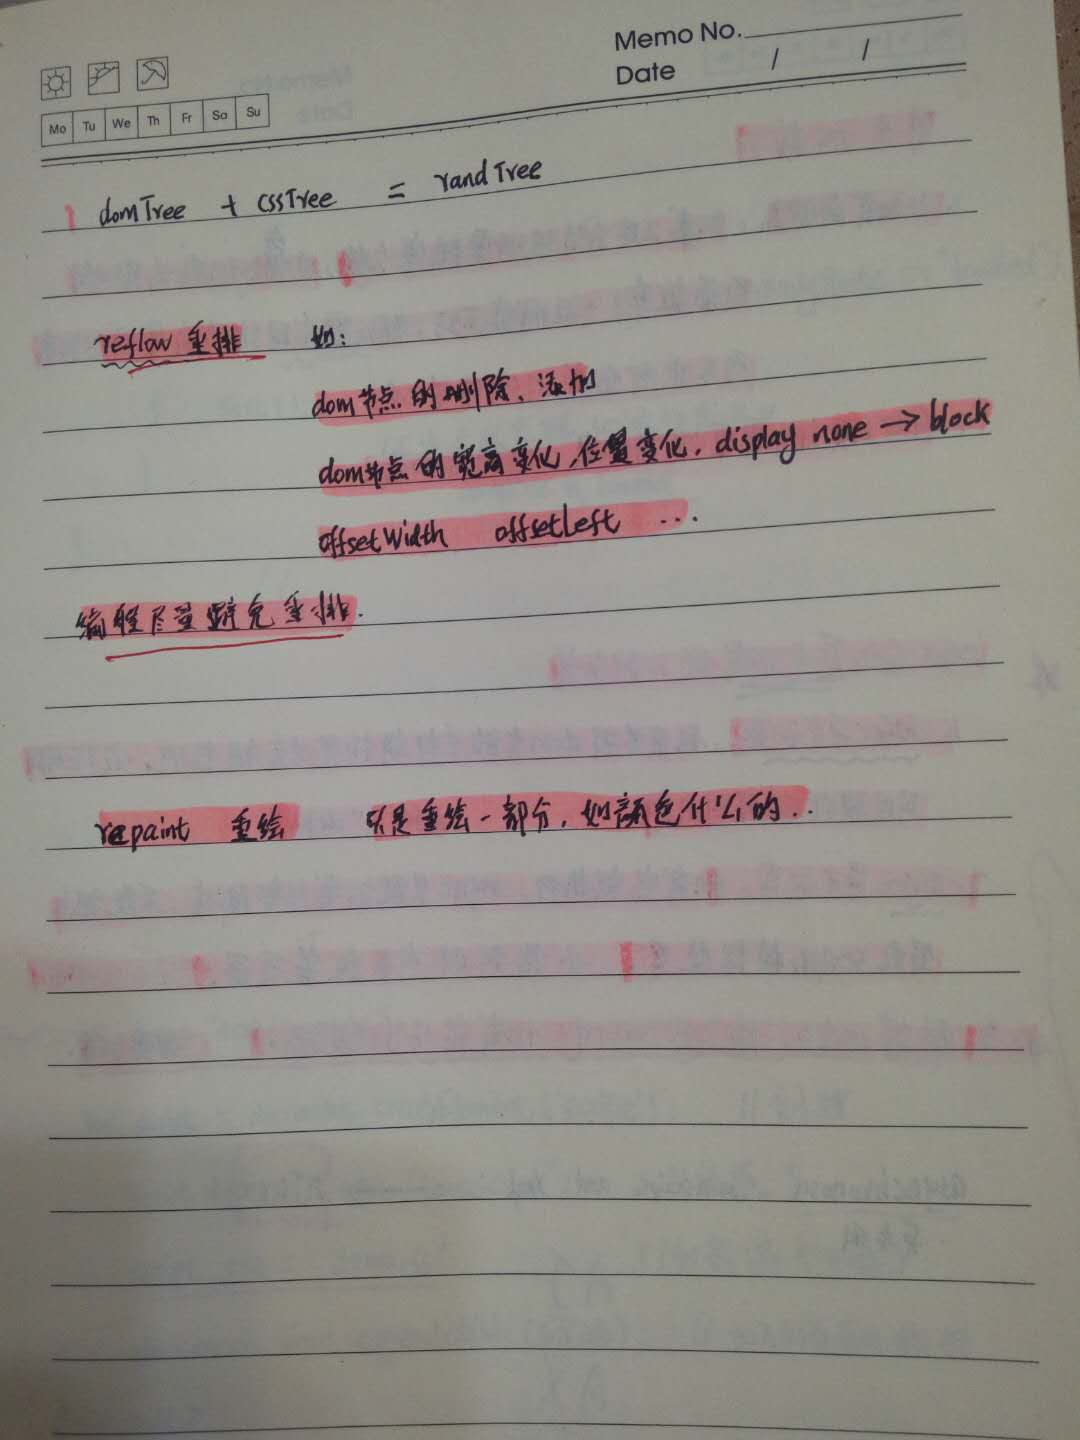 Memo No.
Date / /
Mo Tu We Th Fr Sa Su
domTree + cssTree = randTree
reflow 重排 如:
dom节点的删除、添加
dom节点的宽高变化,位置变化, display none → block
offsetWidth offsetLeft ...
编程尽量避免重排.
repaint 重绘 只是重绘一部分, 如颜色什么的...